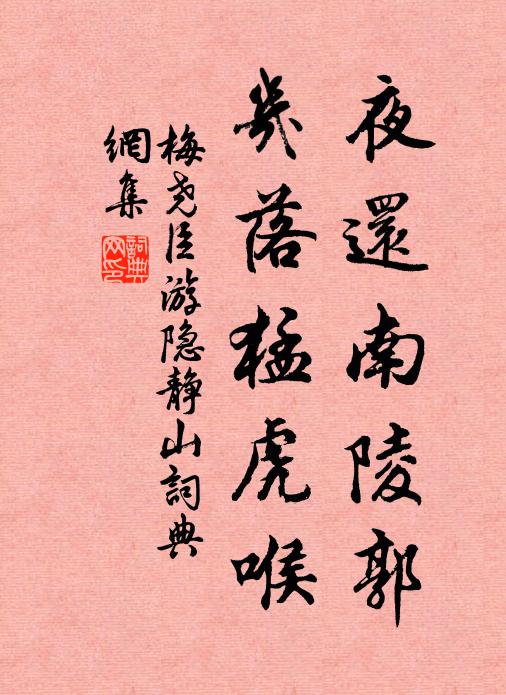 夜還南陵郭
幾落猛虎喉
梅尧臣游隐静山詞典
網集
詞典
网印